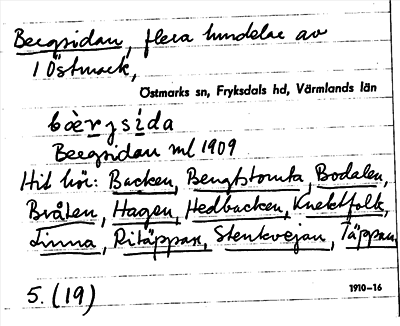 Bergsidan, flera hundelar av
i Östmark,
Östmarks sn, Fryksdals hd, Värmlands län
bær̀gsída
Bergsidan ml 1909
Hit hör: Backen, Bengtstomta, Bodalen,
Bråten, Hagen, Hedbacken, Knektfolk,
Linna, Ritäppan, Stenkvejan, Täppan
5. (19)
1910-16